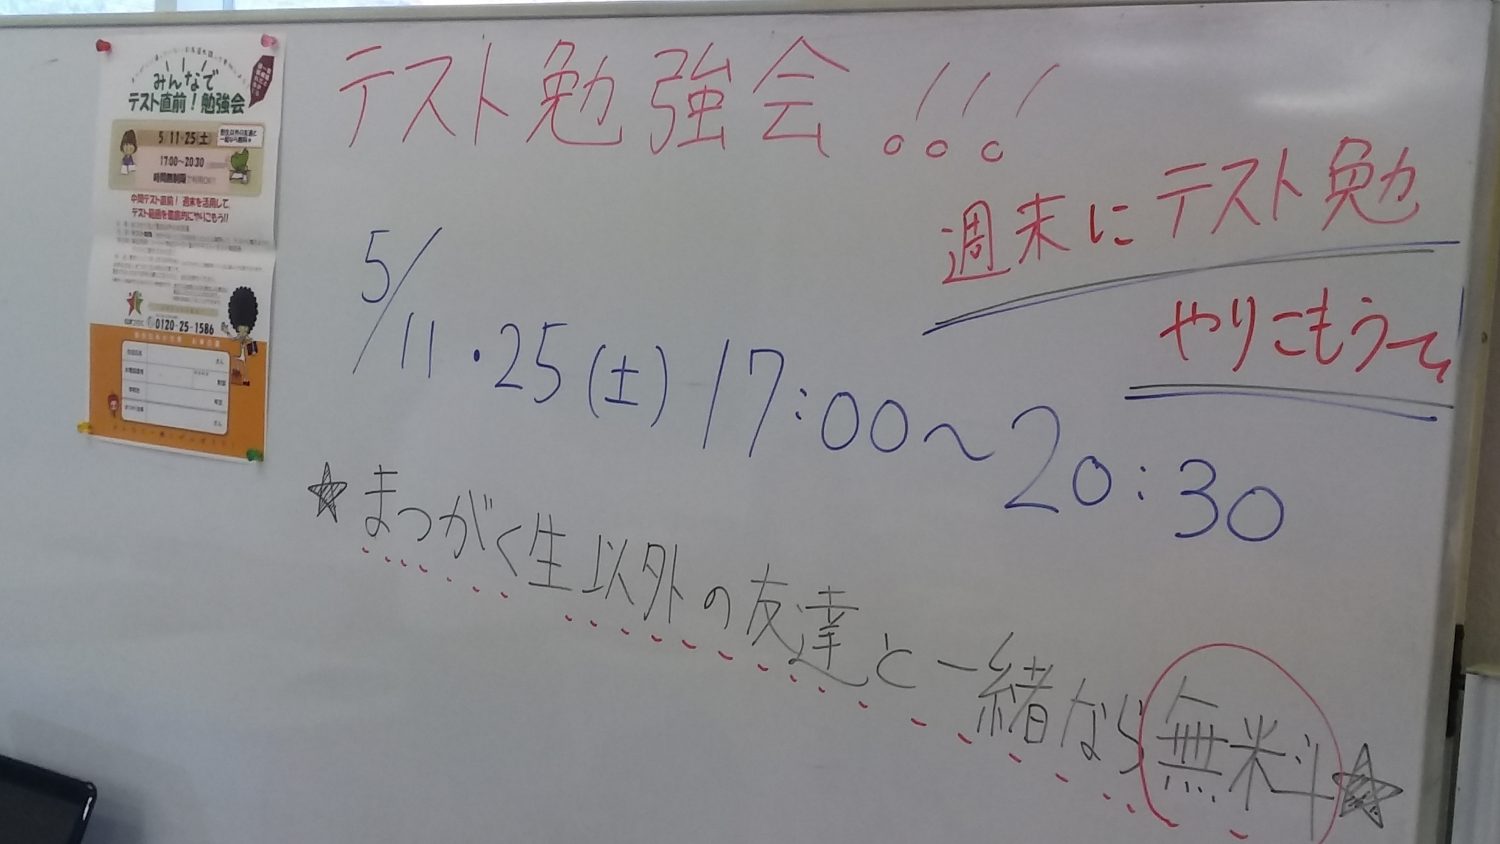 テスト勉強会!!!
週末にテスト勉
やりこもうて
5/11・25(土) 17:00～20:30
★まつがく生以外の友達と一緒なら無料★
みんなで
テスト直前！勉強会
5 11・25(土)
17:00～20:30
時間無制限
中間テスト直前！週末を活用して、
テスト範囲を徹底的にやりこもう!!
0120-25-1586